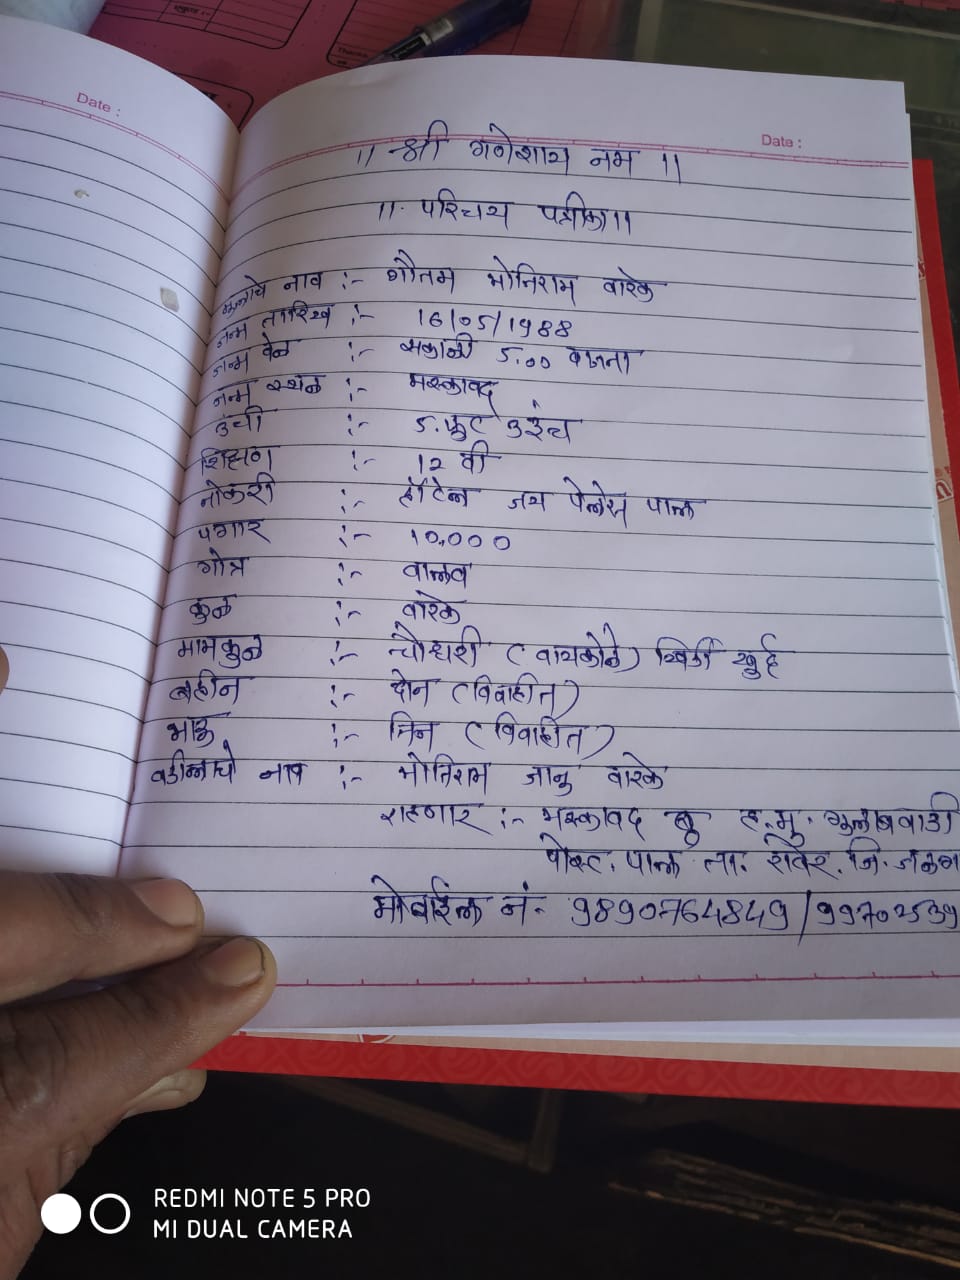 Date :
Date :
।। श्री गणेशाय नम ।।
।। परिचय पत्रीका ।।
मुलाचे नाव :- गौतम मोतिराम बारके
जन्म तारिख :- 16/05/1988
जन्म वेळ :- सकाळी 5.00 वाजता
जन्म स्थळ :- मस्कावद
उंची :- 5. फुट 3 इंच
शिक्षण :- 12 वी
नोकरी :- हॉटेल जय पॅलेस पाल
पगार :- 10,000
गोत्र :- वाळव
कुळ :- बारके
मामकुळ :- चौधरी (वायकोळे) खिर्डी खुर्द
बहीन :- दोन (विवाहीत)
भाऊ :- तिन (विवाहीत)
वडीलाचे नाव :- मोतिराम जानु बारके
राहणार :- मस्कावद बु ह.मु. गुलाबवाडी
पोस्ट. पाल ता. रावेर. जि.
मोबाईल नं. 9890764849/99702539
REDMI NOTE 5 PRO
MI DUAL CAMERA